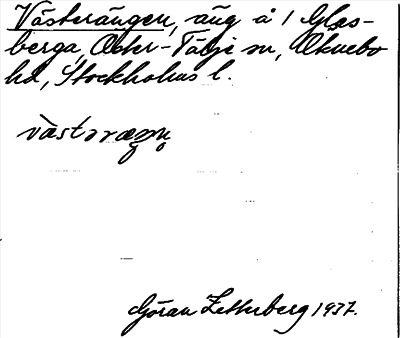 Västerängen, äng å 1 Glas-
berga, Öster-Tälje sn, Öknebo
hd, Stockholms l.
västəræŋən
Göran Zetterberg 1937.